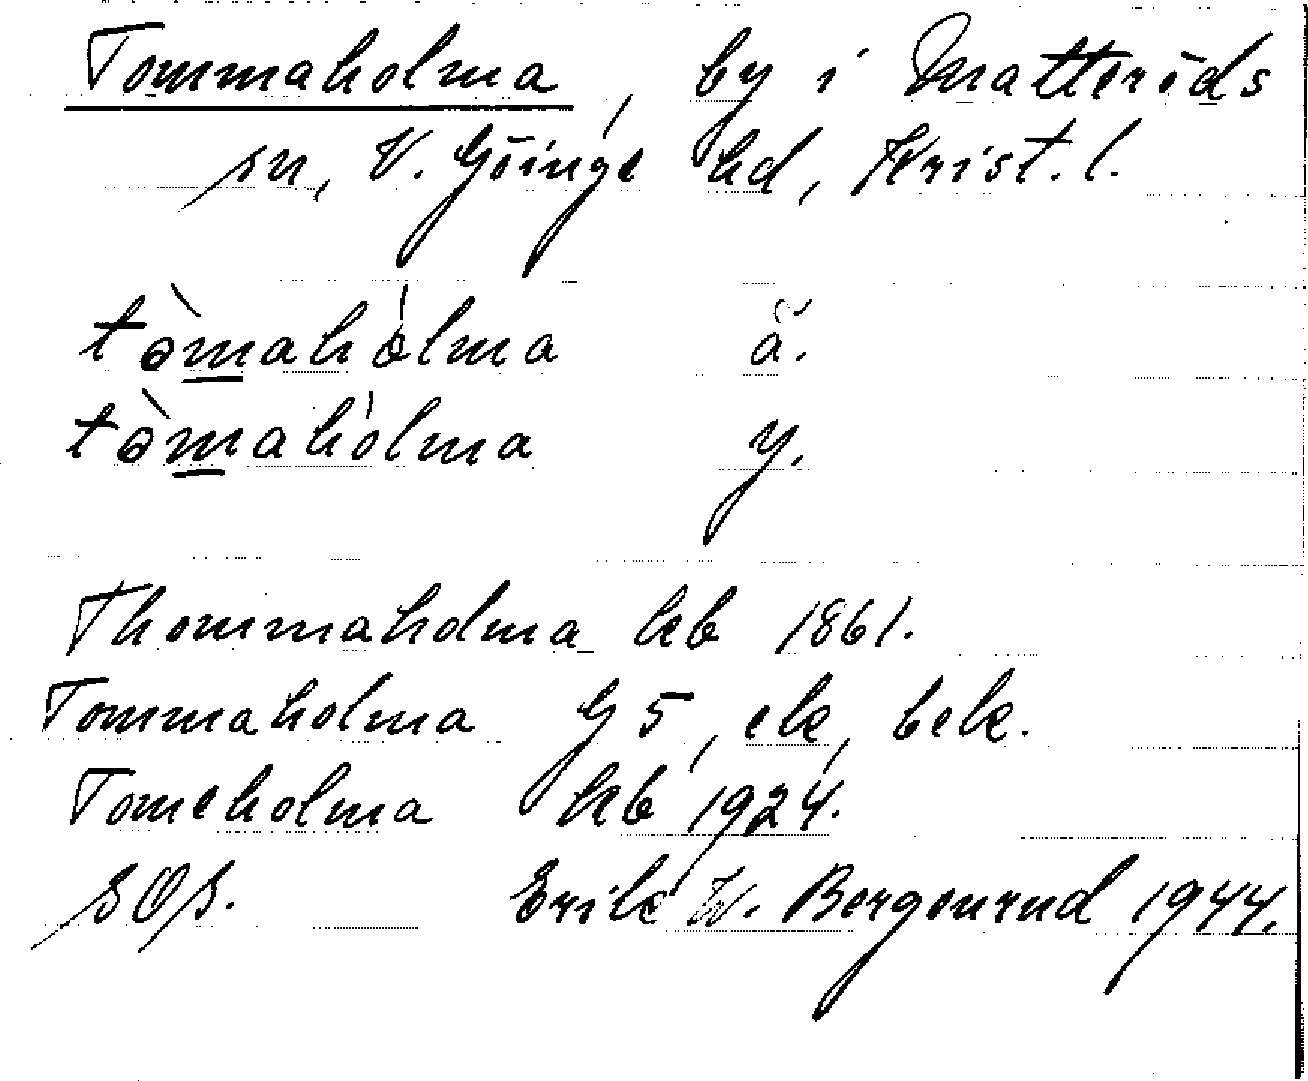 Tommaholma, by i Matteröds
sn, V. Göinge hd, Krist. l.
tòmahólma ä.
tòmahólma y.
Thommaholma kb 1861.
Tommaholma G5, ek, bek.
Tomeholma kb 1924.
SOS. Erik W. Bergenrud 1944.